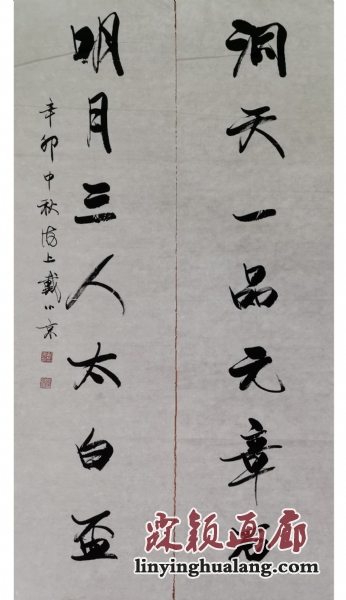 洞天一品元章
明月三人太白盃
辛卯中秋海上戴小京
霖颖画廊
linyinghualang.com